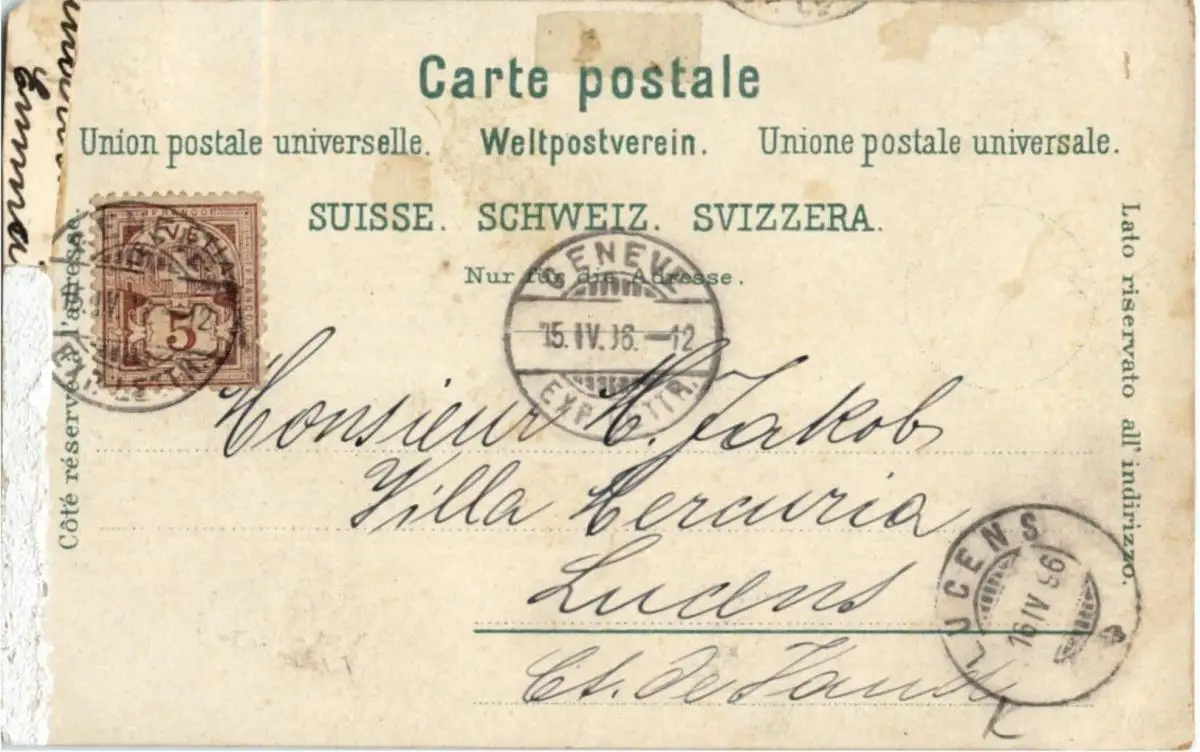 Carte postale
Union postale universelle. Weltpostverein. Unione postale universale.
SUISSE. SCHWEIZ. SVIZZERA.
Nur für die Adresse.
Côté réservé à l'adresse.
Lato riservato all' indirizzo.
Emma
FRANCO
5
GENEVE
15.IV.96.-12
EXP. LETTR.
Monsieur H. Jakob
Villa Mercuria
Lucens
Ct. de Vaud
LUCENS
16 IV 96